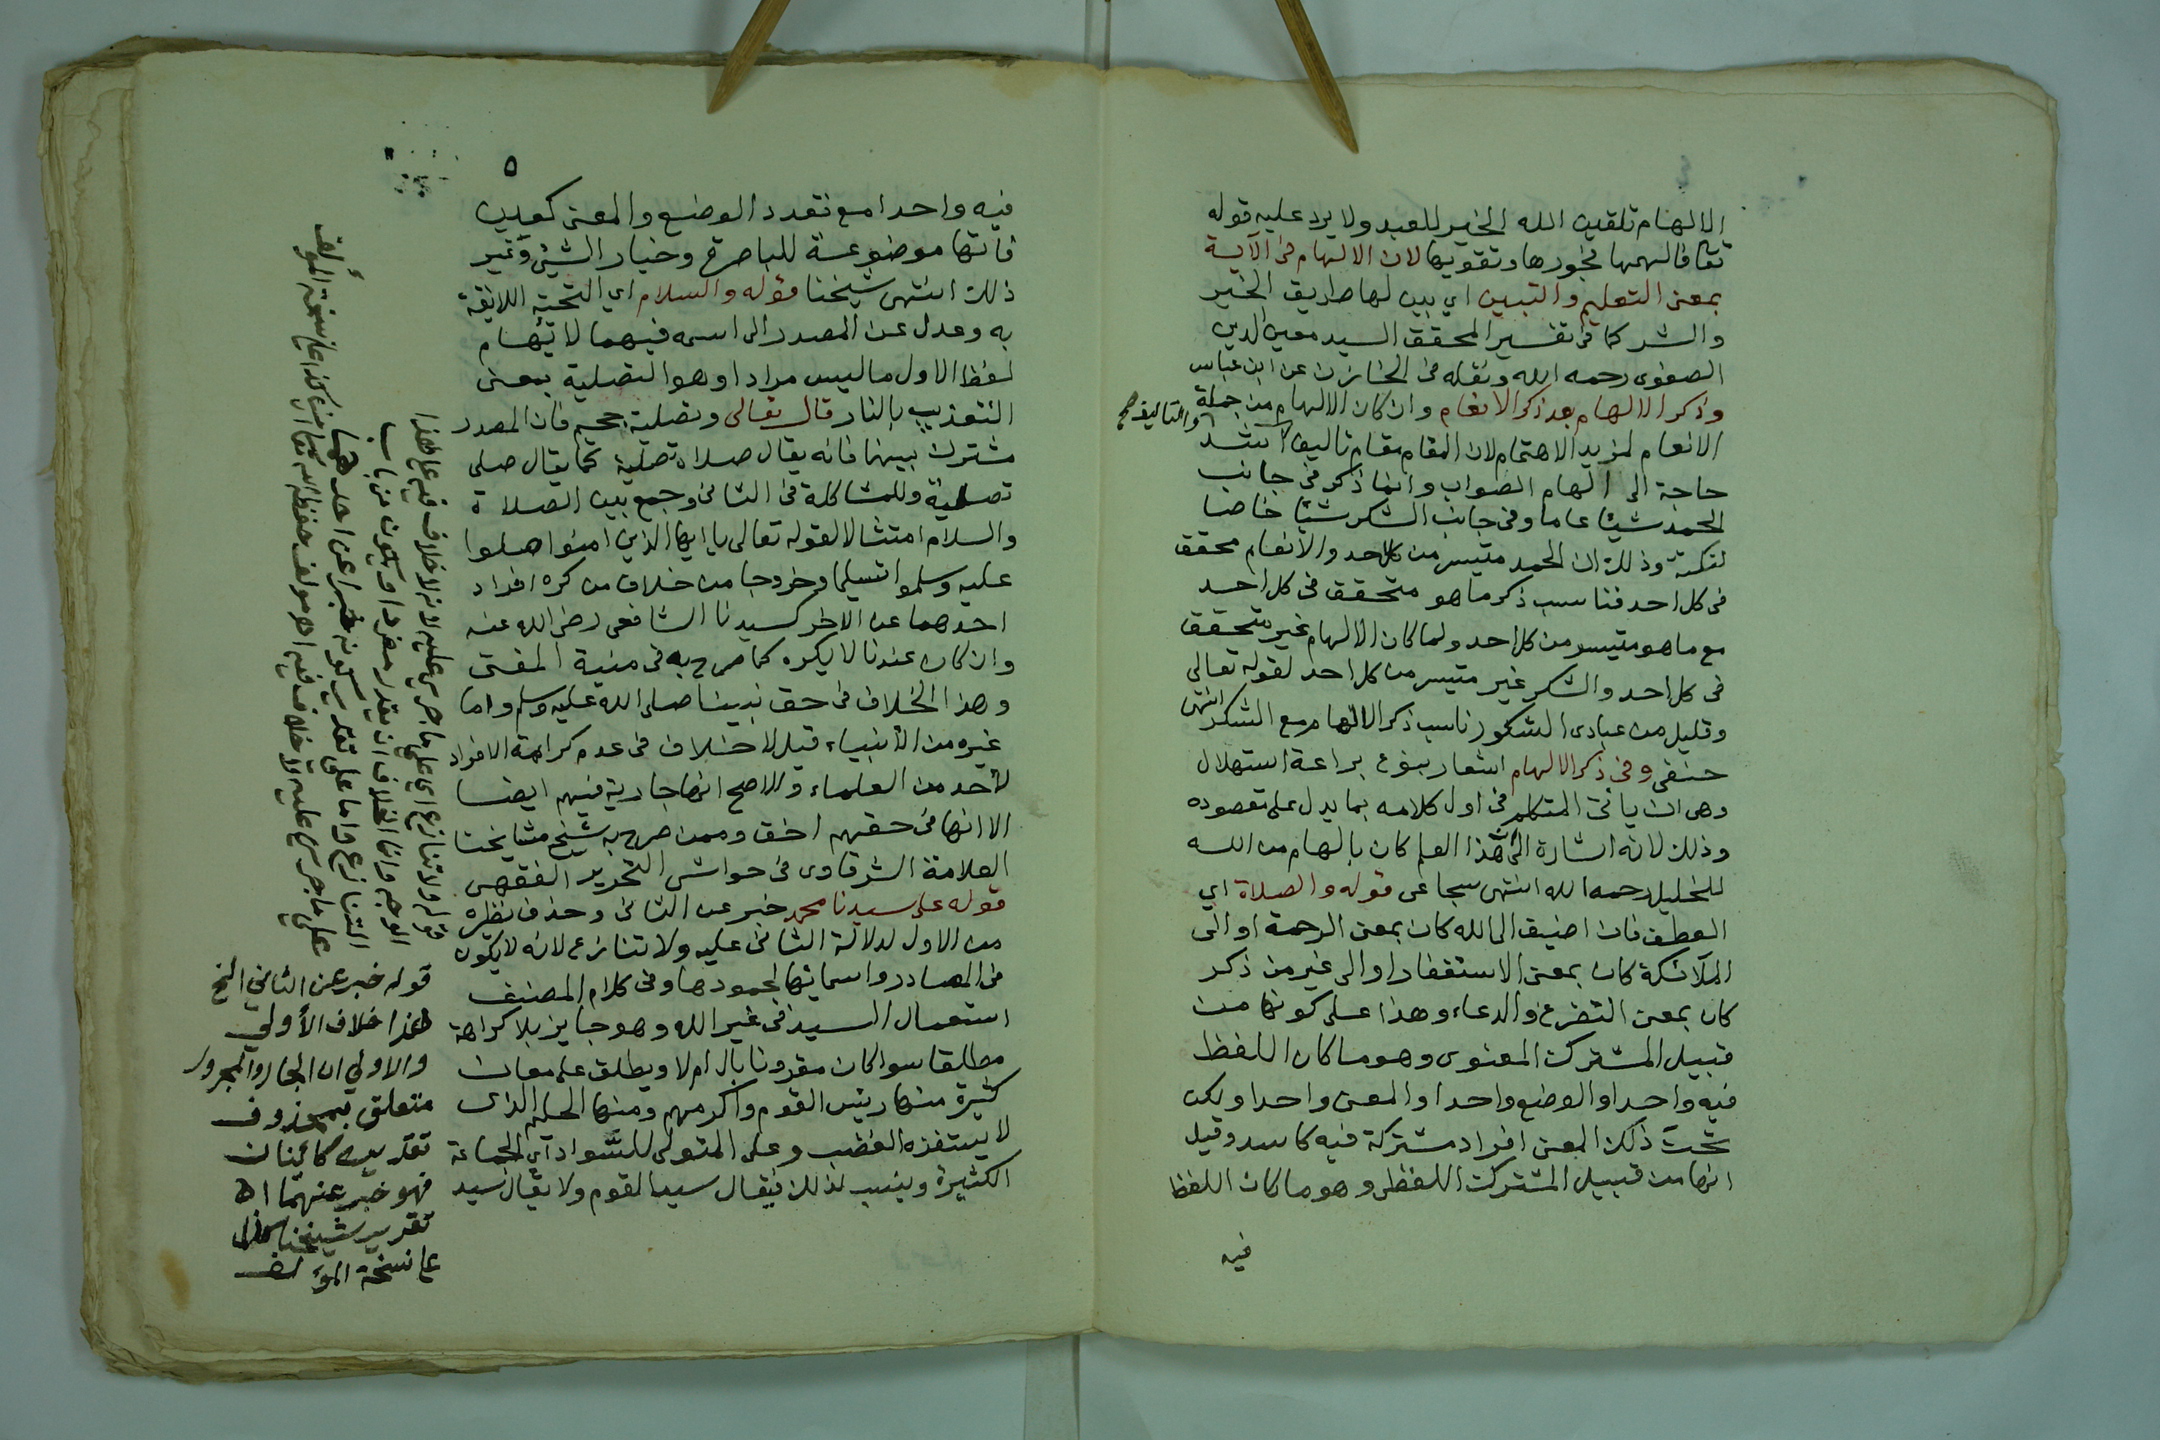 الالهام تلقين الله الخير للعبد ولا يرد عليه قوله
تعا فالهمها فجورها وتقويها لان الالهام في الآية
بمعنى التعليم والتبيين اي بين لها طريق الخير
والشر كما في تفسير المحقق السيد معين الدين
الصفوى رحمه الله ونقله في الخازن عن ابن عباس
وذكر الالهام بعد ذكر الانعام وان كان الالهام من جملة
الانعام لمزيد الاهتمام لان المقام مقام تاليف اشتد
والتاليف صح
حاجة الى الهام الصواب وانما ذكر في جانب
الحمد شيئا عاما وفي جانب الشكر شيئا خاصا
لنكتة وذلك ان الحمد متيسر من كل احد والانعام محقق
في كل احد فناسب ذكر ما هو متحقق في كل احد
مع ما هو متيسر من كل احد ولما كان الالهام غير متحقق
في كل احد والشكر غير متيسر من كل احد لقوله تعالى
وقليل من عبادى الشكور ناسب ذكر الالهام مع الشكر انتهى
حنفى وفي ذكر الالهام اشعار بنوع براعة استهلال
وهى ان ياتى المتكلم في اول كلامه بما يدل على مقصوده
وذلك لانه اشارة الى ان هذا العلم كان بالهام من الله
للخليل رحمه الله انتهى سجاعى قوله والصلاة اي
العطف فان اضيف الى الله كان بمعنى الرحمة او الى
الملائكة كان بمعنى الاستغفار او الى غير من ذكر
كان بمعنى التضرع والدعاء وهذا على كونها من
قبيل المشترك المعنوى وهو ما كان اللفظ
فيه واحدا والوضع واحدا والمعنى واحدا ولكن
تحت ذلك المعنى افراد مشتركة فيه كاسد وقيل
انها من قبيل المشترك اللفظى وهو ما كان اللفظ
فيه
٥
فيه واحدا مع تعدد الوضع والمعنى كعين
فانها موضوعة للباصرة وخيار الشيئ وغير
ذلك انتهى شيخنا قوله والسلام اي التحية اللائقة
به وعدل عن المصدر الى اسمه فيهما لايهام
لفظ الاول ما ليس مرادا وهو التصلية بمعنى
التعذيب بالنار قال تعالى وتصلية جحيم فان المصدر
مشترك بينهما فانه يقال صلاه تصلية كما يقال صلى
تصلية وللمشاكلة في الثانى وجمع بين الصلاة
والسلام امتثالا لقوله تعالى يا ايها الذين امنوا صلوا
عليه وسلموا تسليما وخروجا من خلاف من كره افراد
احدهما عن الاخر كسيدنا الشافعى رضى الله عنه
وان كان عندنا لا يكره كما صرح به في منية المفتى
وهذا الخلاف في حق نبينا صلى الله عليه وسلم واما
غيره من الأنبياء قيل لا خلاف في عدم كراهة الافراد
لأحد من العلماء والاصح انها جارية فيهم ايضا
الا انها في حقهم اخف وممن صرح به شيخ مشايخنا
العلامة الشرقاوى في حواشى التحرير الفقهى
قوله على سيدنا محمد خبر عن الثانى وحذف نظيره
من الاول لدلالة الثانى عليه ولا تنازع لانه لا يكون
في المصادر واسمائها لجمودها وفي كلام المصنف
استعمال السيد في غير الله وهو جايز بلا كراهة
مطلقا سوا كان مقرونا بال ام لا ويطلق على معان
كثيرة منها رئيس القوم واكرمهم ومنها الحليم الذى
لا يستفزه الغضب وعلى المتولى للسواد اي الجماعة
الكثيرة وينسب لذلك فيقال سيد القوم ولا يقال سيد
قوله ولا تنازع اي على ما جرى عليه لانه لا خلاف فيه على هذا
الوجه وانما الخلاف ان يقدر مفردا ويكون من باب
التنازع واما على تقدير كونه خبرا عن احدهما
على ما جرى عليه
كذا على نسخة المؤلف
قوله خبر عن الثاني الخ
هذا خلاف الأولي
والاولي ان الجار والمجرور
متعلق بمحذوف
تقديره كائنان
فهو خبر عنهما اه
تقرير شيخنا كذا
على نسخة المؤلف